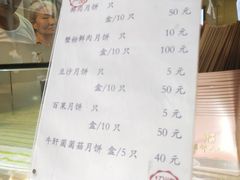 鲜肉月饼 只 5元
盒/10只 50元
蟹粉鲜肉月饼 只 10元
盒/10只 100元
豆沙月饼 只 5元
盒/10只 50元
百果月饼 只 5元
盒/10只 50元
牛肝菌菌菇月饼 盒/5只 40元